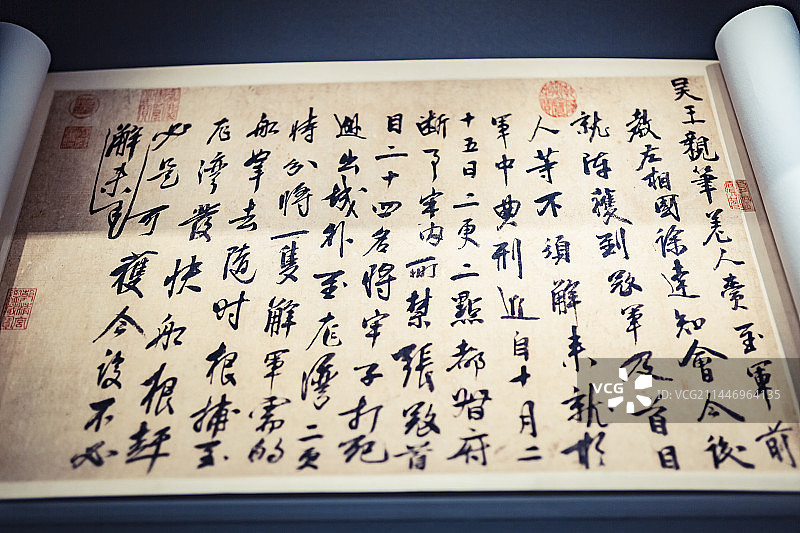 吳王親筆差人賫至軍前
教左相國徐達知會今後
就陣獲到寇軍及首目
人等不須解来就於
軍中典刑近自十月二
十五日二更二點都督府
断事牢内所禁張寇首
目二十四名將牢子打死
出城外至龙灣二更
時分將一隻解軍需的
船拏去随时根捕至
龙灣發快船根赶
必是可獲今後不必
解来
VCG
VCG211446964135